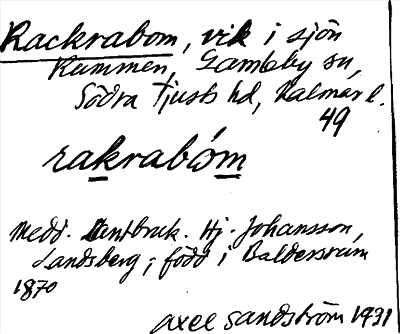 Rackrabom, vik i sjön
Rummen, Gamleby sn,
Södra Tjusts hd, Kalmar l.
49
rakrabóm
Medd. Lantbruk. Hj. Johansson,
Landsberg; född i Baldersrum
1870
Axel Sandström 1931